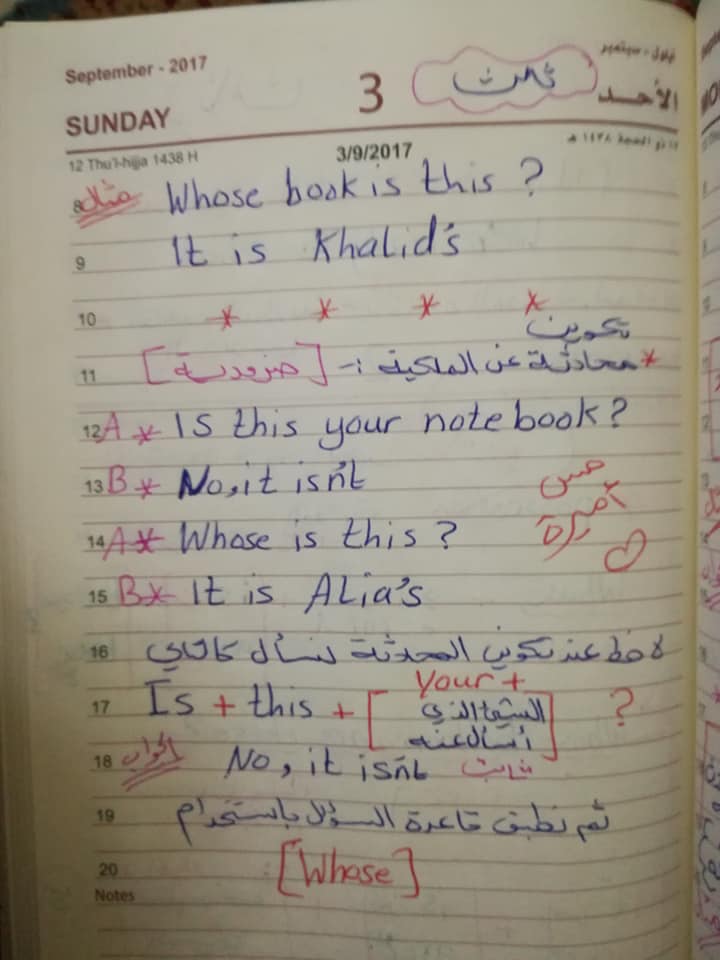 September - 2017
3
ثالث
ايلول - سبتمبر
SUNDAY
الأحد
12 Thu'l-hijja 1438 H
3/9/2017
١٢ ذو الحجة ١٤٣٨ هـ
8 مثال Whose book is this ?
9 It is Khalid's
10 * * * *
تكوين
11 * محادثة عن الملكية :- [ضرورية]
12 A * Is this your notebook?
13 B * No, it isn't
حسن
14 A * Whose is this ?
أميرة
15 B * It is ALia's
16 لاحظ عند تكوين المحدثة لنسأل كالتالي
your +
17 Is + this + [ الشيء الذي ?
أسأل عنه ]
18 الجواب No, it isn't ثابت
19 ثم نطبق قاعدة السؤال باستخدام
20 [Whose]
Notes